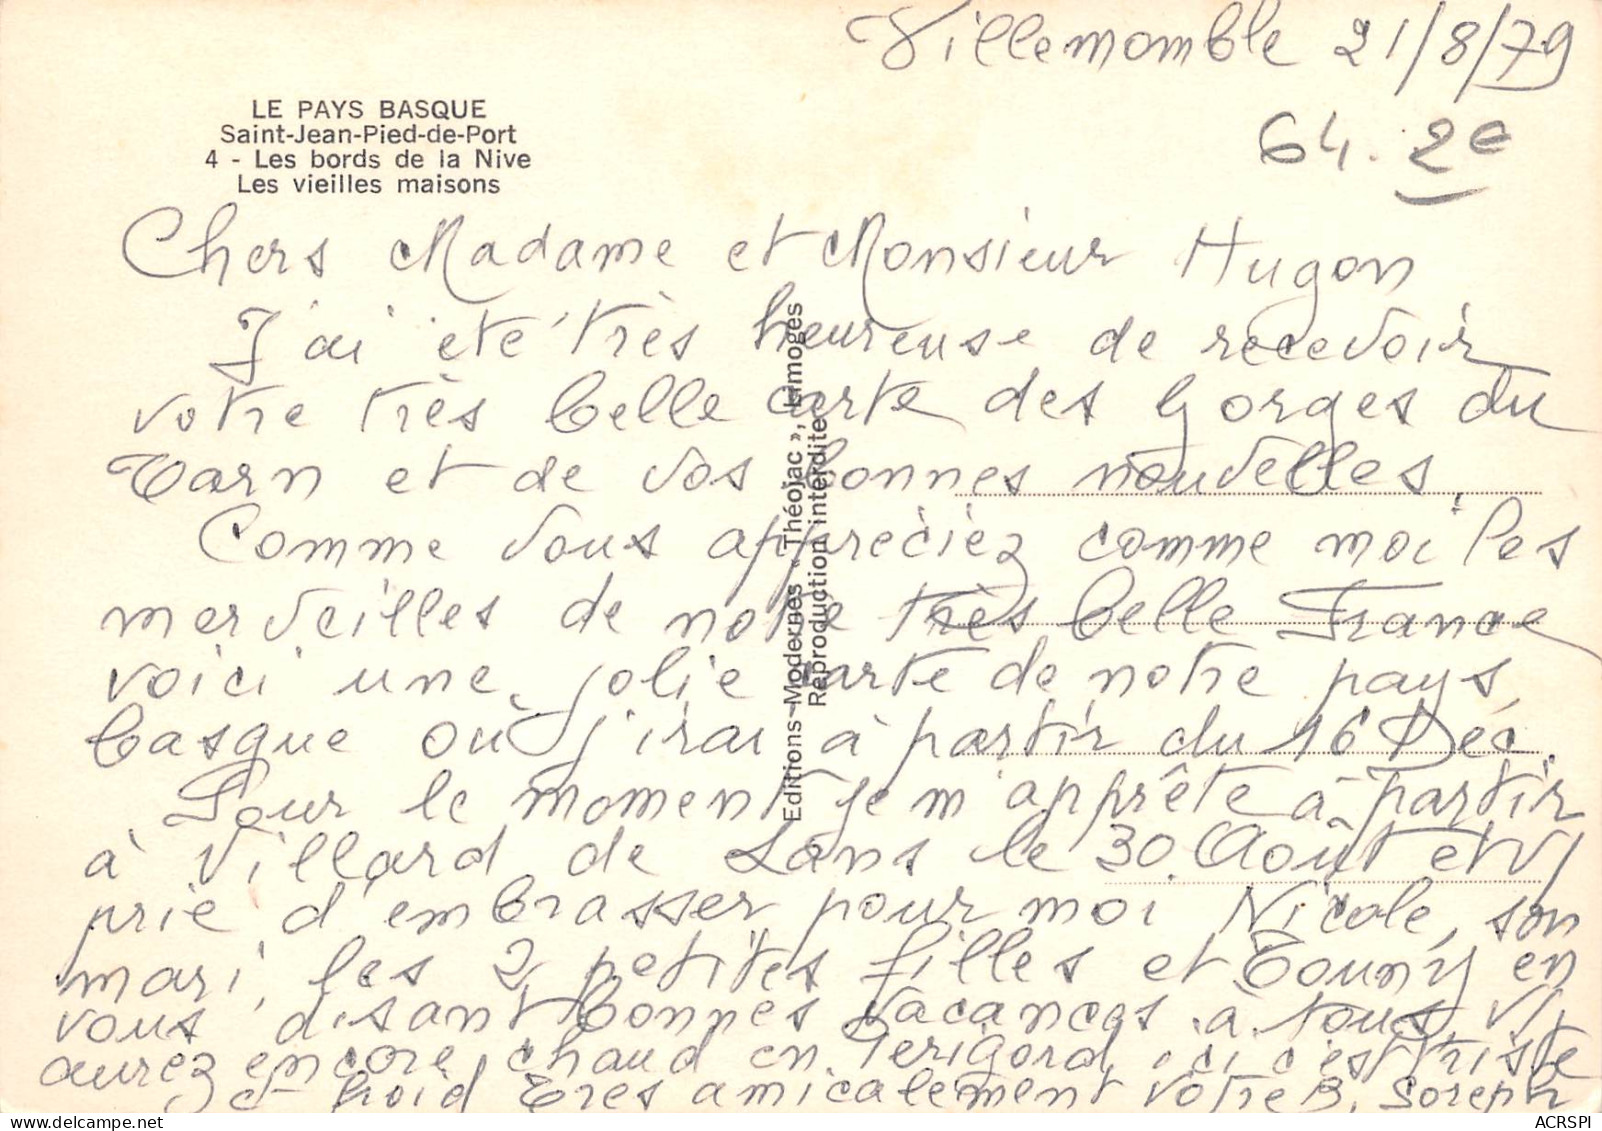 Villemomble 21/8/79
64. 2e
LE PAYS BASQUE
Saint-Jean-Pied-de-Port
4 - Les bords de la Nive
Les vieilles maisons
Chers Madame et Monsieur Hugon
J'ai été très heureuse de recevoir
votre très belle carte des Gorges du
Tarn et de vos bonnes nouvelles.
Comme vous appréciez comme moi les
merveilles de notre très belle France
voici une jolie carte de notre pays
basque où j'irai à partir du 16 Déc.
Pour le moment je m'apprête à partir
à Villard de Lans le 30 Août et v/
prie d'embrasser pour moi Nicole, son
mari, les 2 petites filles et Touny en
vous disant bonnes vacances à tous V/
aurez encore chaud en Périgord, ici c'est triste
et froid Très amicalement votre B. Soreph
Editions Modernes « Théojac », Limoges
Reproduction interdite
ACRSPI